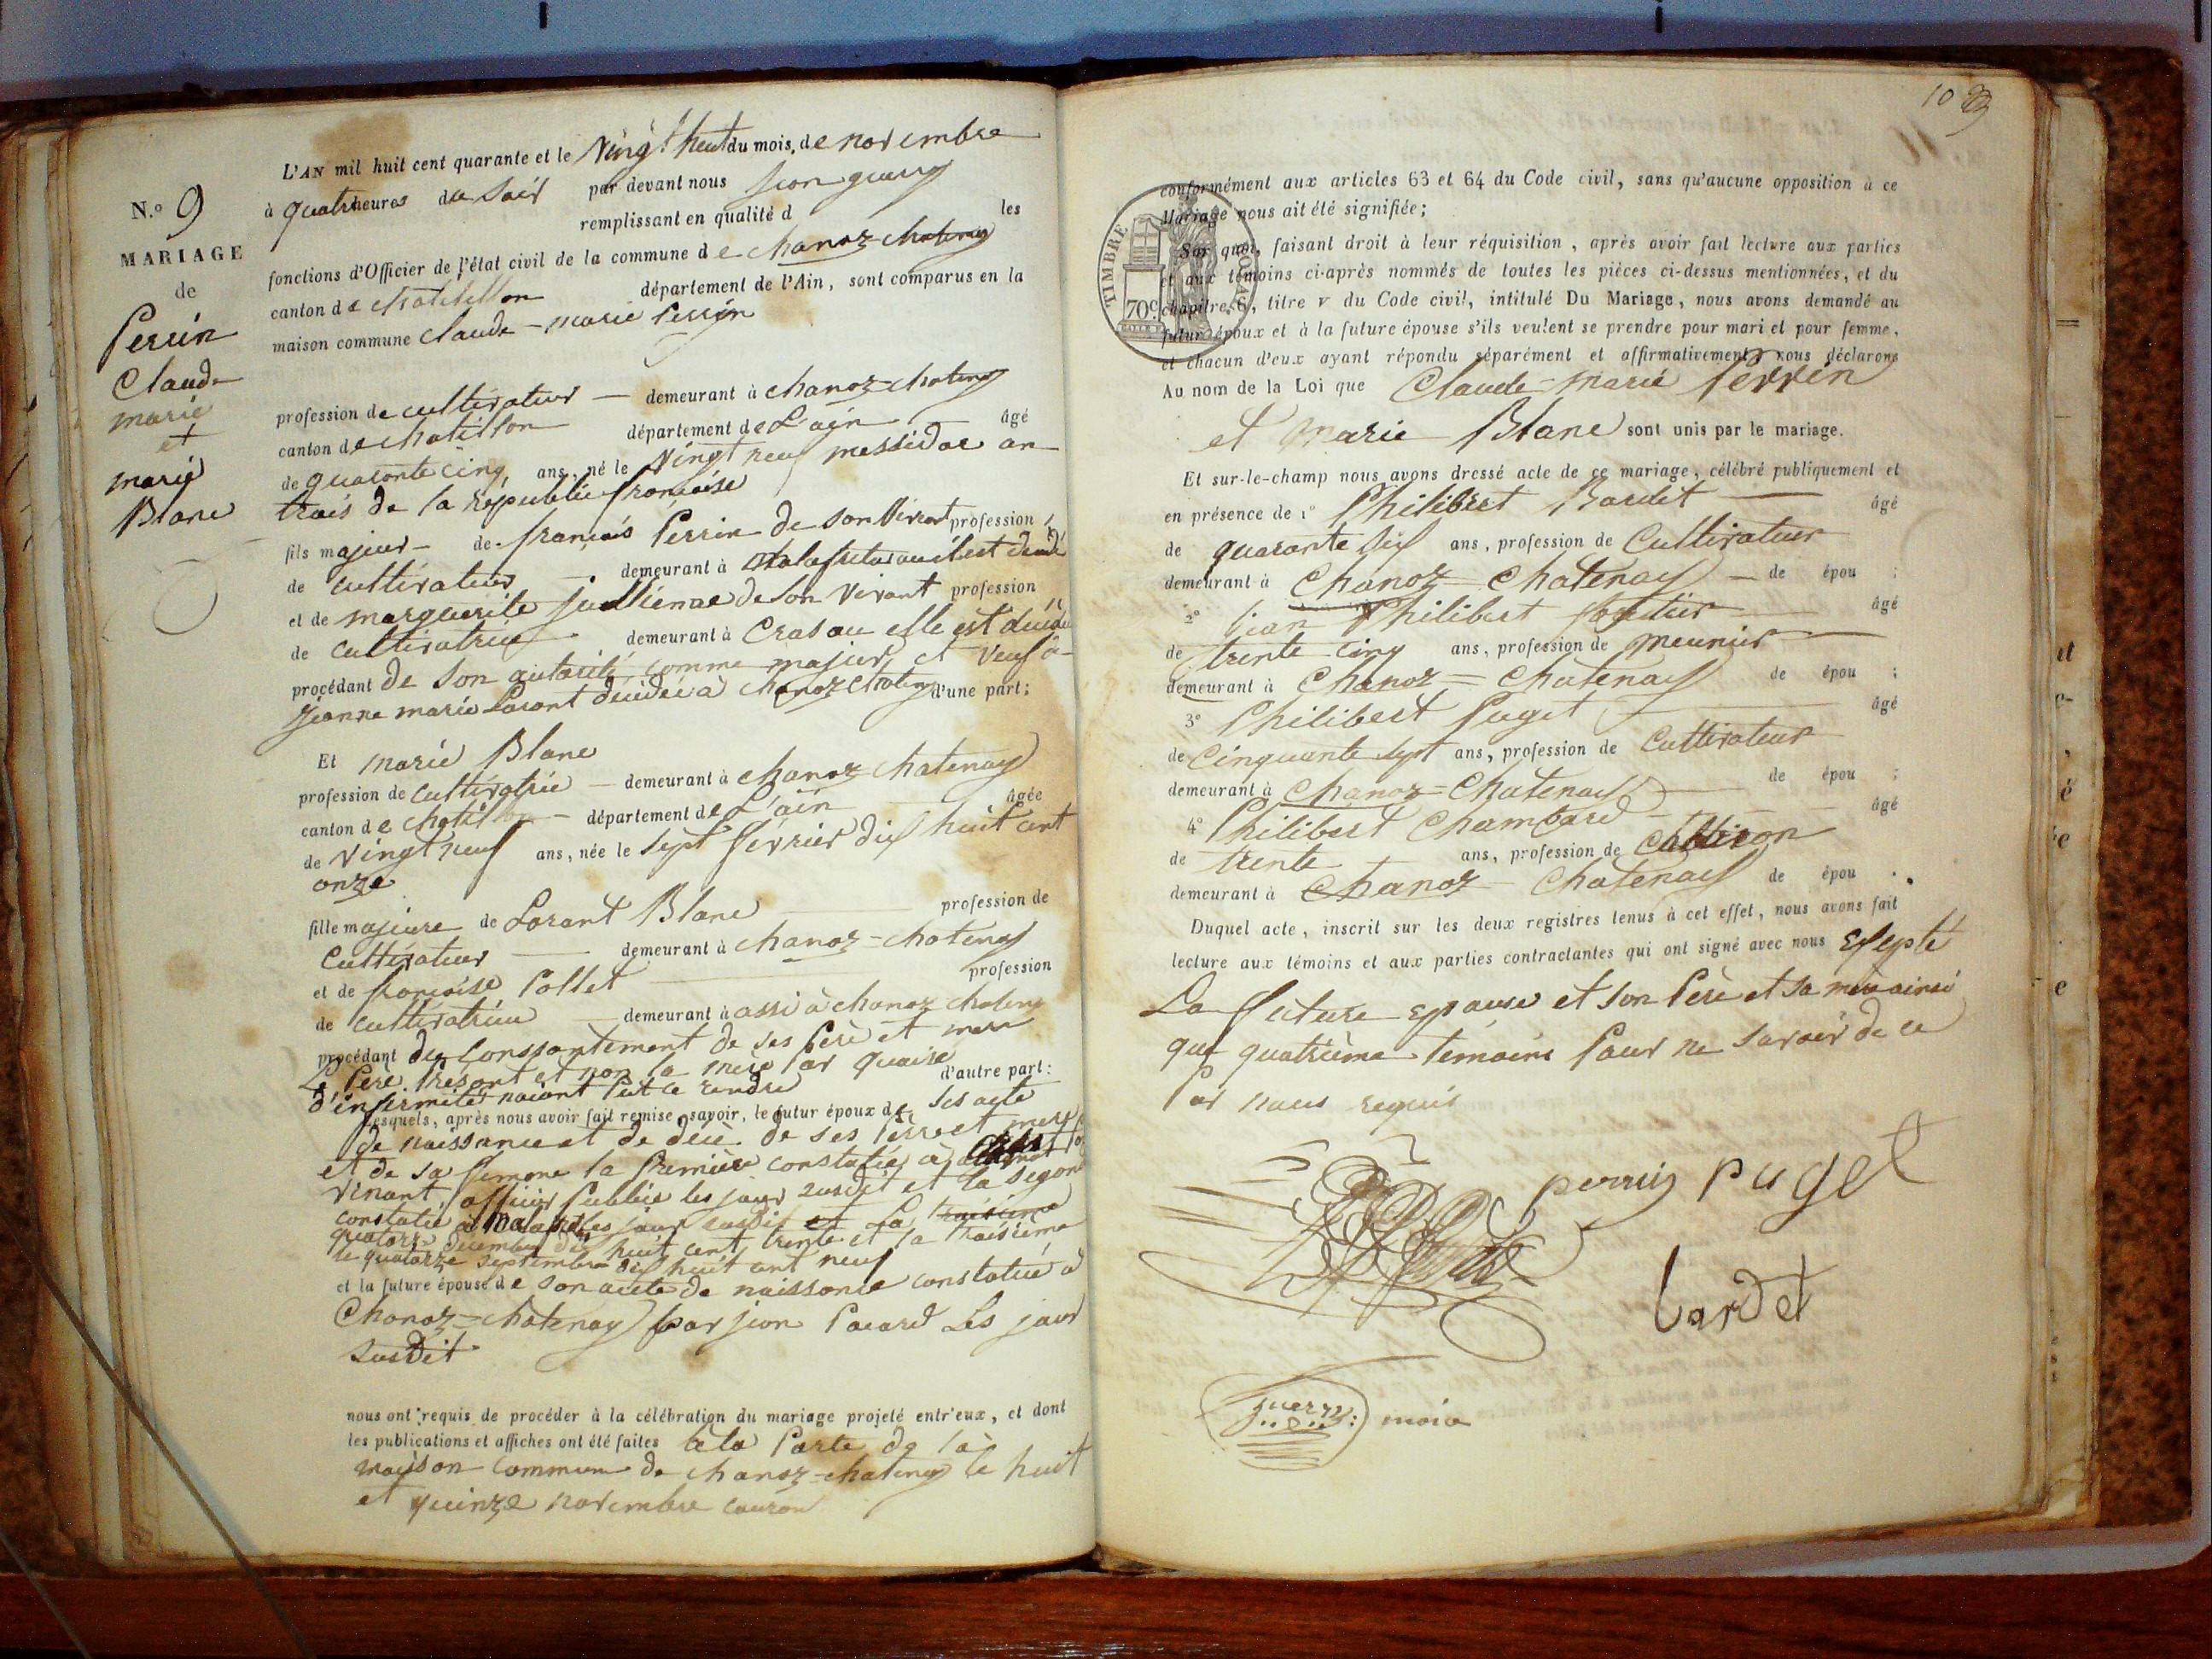 N.º 9
MARIAGE
de
Perrin
Claude
marie
et
marie
Blanc
L'AN mil huit cent quarante et le Vingt huit du mois de novembre
à quatre heures du soir par devant nous jean guerry
remplissant en qualité d les
fonctions d'Officier de l'état civil de la commune de chanoz-chatenay
canton de chatillon département de l'Ain, sont comparus en la
maison commune Claude-marie Perrin
profession de cultivateur demeurant à chanoz-chatenay
canton de chatillon département de L'ain âgé
de quarante cinq ans, né le Vingt neuf messidor an
trois de la république françoise
fils majeur de françois Perrin de son Vivant profession
de cultivateur demeurant à où il est
et de marguerite de son vivant profession
de cultivatrice demeurant à Cras ou elle est
procédant de son autorité comme majeur et veuf à
jeanne marie Lorant décédée à chanoz chatenay d'une part;
Et marie Blanc
profession de cultivatrice demeurant à chanoz chatenay
canton de chatillon département de L'ain âgée
de vingt neuf ans, née le sept février dix huit cent
onze
fille majeure de Lorant Blanc profession de
Cultivateur demeurant à chanoz-chatenay
et de françoise Pollet profession
de cultivatrice demeurant à assi à chanoz chatenay
procédant du consantement de ses Père et mere
Le Père Présant et non la mère Par quaise
d'infermité naiant Put ce randre d'autre part:
Lesquels, après nous avoir fait remise, savoir, le futur époux de ses acte
de naissance et de décè de ses Père et mere
et de sa femme la première constatée à
vinant officier Publie les jour susdit et la segon
constatée à les jour susdit et La troisième
quatorze décembre dix huit cent trente et la troisième
le quatorze septembre dix huit cent neuf
et la future épouse de son acte de naissance constatée à
Chanoz-chatenay par jean Pacard Les jour
susdit
nous ont requis de procéder à la célébration du mariage projeté entr'eux, et dont
les publications et affiches ont été faites à la Porte de la
maison commune de chanoz-chatenay le huit
et quinze novembre couran
10
conformément aux articles 63 et 64 du Code civil, sans qu'aucune opposition à ce
Mariage nous ait été signifiée;
Sur quoi, faisant droit à leur réquisition, après avoir fait lecture aux parties
et aux témoins ci-après nommés de toutes les pièces ci-dessus mentionnées, et du
chapitre 6, titre v du Code civil, intitulé Du Mariage, nous avons demandé au
futur époux et à la future épouse s'ils veulent se prendre pour mari et pour femme,
et chacun d'eux ayant répondu séparément et affirmativement, nous déclarons
TIMBRE ROYAL
70 c.
Au nom de la Loi que Claude-marie Perrin
et marie Blanc sont unis par le mariage.
Et sur-le-champ nous avons dressé acte de ce mariage, célébré publiquement et
en présence de 1º Philibert Bardet âgé
de quarante six ans, profession de Cultivateur
demeurant à Chanoz-Chatenay de épou ;
2º jean Philibert âgé
de trente cinq ans, profession de meunier
demeurant à Chanoz=Chatenay de épou ;
3º Philibert Puget âgé
de Cinquante sept ans, profession de Cultivateur
demeurant à Chanoz=Chatenay de épou ;
4º Philibert Chambard âgé
de trente ans, profession de
demeurant à Chanoz Chatenay de épou .
Duquel acte, inscrit sur les deux registres tenus à cet effet, nous avons fait
lecture aux témoins et aux parties contractantes qui ont signé avec nous Exsepté
La future epouse et son Père et sa mère ainsi
que quatrième témoins Pour ne savoir de ce
Par nous requis
perrin puget
bardet
guerry: maire